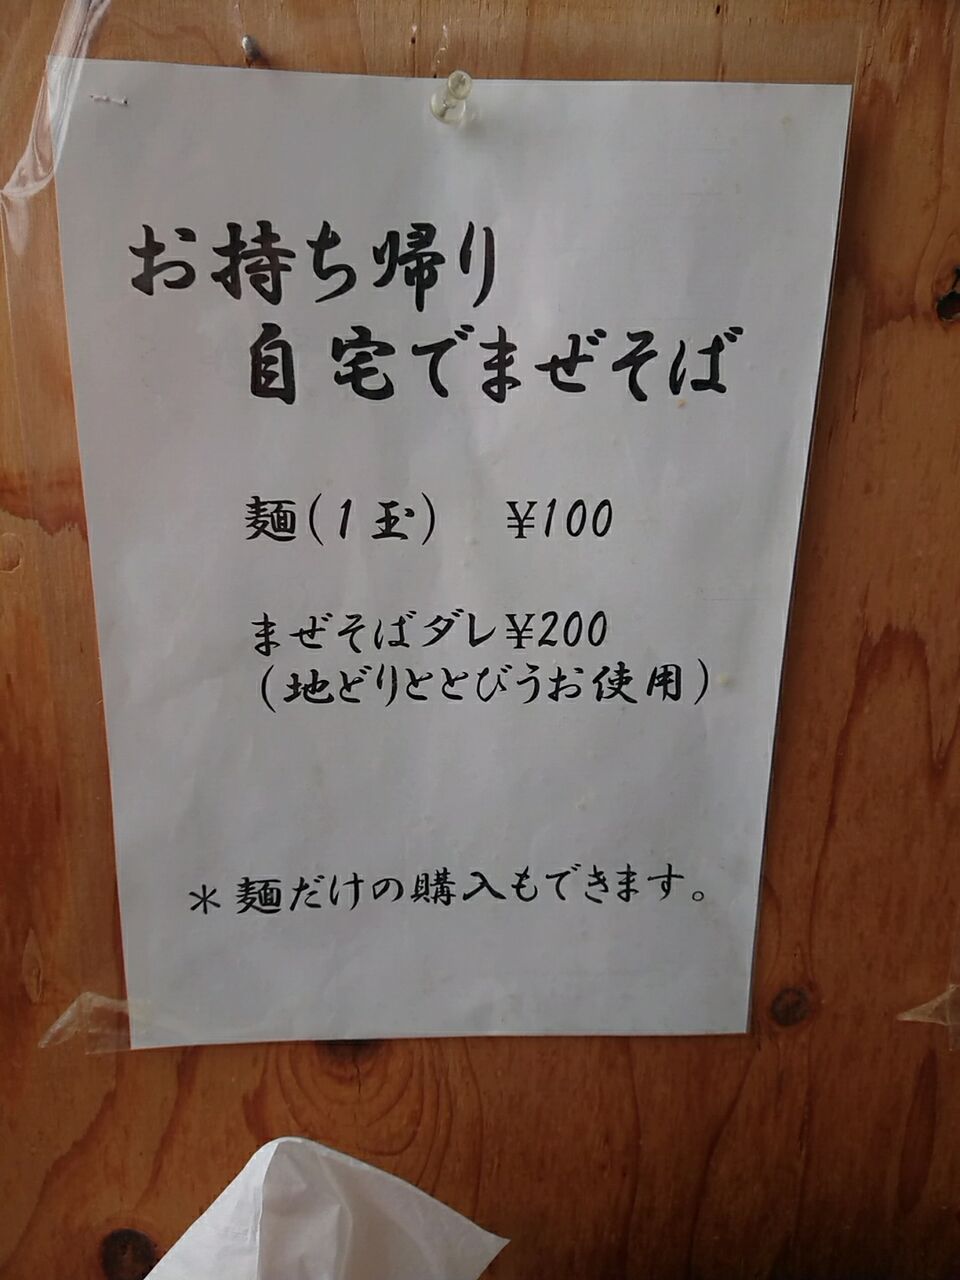 お持ち帰り
自宅でまぜそば
麺(1玉) ¥100
まぜそばダレ¥200
(地どりととびうお使用)
*麺だけの購入もできます。